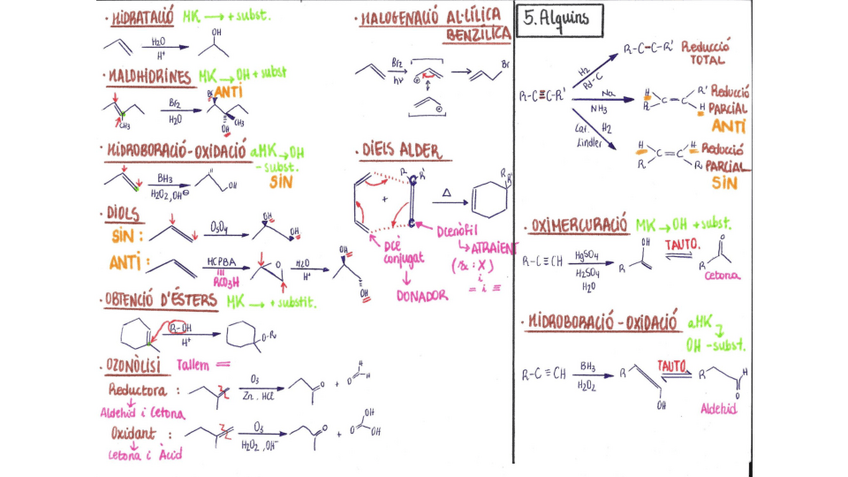 · HIDRATACIÓ MK → + subst.
H2O
H+
OH
· HALOHIDRINES MK → OH + subst
ANTI
Br2
H2O
Br
CH3
CH3
OH
· HIDROBORACIÓ-OXIDACIÓ aMK → OH
- subst.
SIN
BH3
H2O2, OH⊖
OH
· DIOLS
SIN :
OsO4
OH
OH
ANTI :
MCPBA
RCO3H
O
H2O
H+
OH
OH
· OBTENCIÓ D'ÉSTERS MK → + substit.
R-OH
H+
O-R
· OZONÒLISI Tallem =
Reductora :
O3
Zn . HCl
O
+
O
H
H
Aldehid i Cetona
Oxidant :
O3
H2O2, OH-
O
+
O
OH
OH
Cetona i Àcid
· HALOGENACIÓ AL·LÍLICA
BENZÍLICA
Br2
hν
Br
· DIELS ALDER
R R'
+
C
C
Δ
R' R
Dié
conjugat
DONADOR
Dienòfil
ATRAIENT
(ex : X)
= i ≡
5. Alquins
R-C≡C-R'
H2
Pd-C
R-C-C-R'
Reducció
TOTAL
Na
NH3
H R'
C=C
R H
Reducció
PARCIAL
ANTI
Cat.
Lindler
H2
H H
C=C
R R1
Reducció
PARCIAL
SIN
· OXIMERCURACIÓ MK → OH + subst.
R-C≡CH
HgSO4
H2SO4
H2O
OH
R
TAUTO.
O
R
Cetona
· HIDROBORACIÓ - OXIDACIÓ aMK
OH - subst.
R-C≡CH
BH3
H2O2
R
OH
TAUTO.
R
H
O
Aldehid